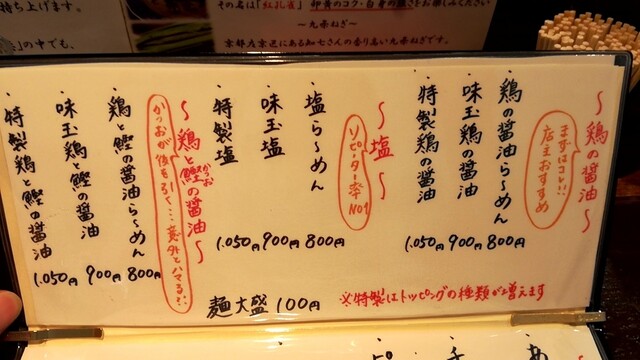 持ち上げます。
の中でも、
その名は「紅孔雀」
〜九条ねぎ〜
〜鶏の醤油〜
まずはコレ!!
店主おすすめ
・鶏の醤油ら〜めん 800円
・味玉鶏の醤油 900円
・特製鶏の醤油 1.050円
〜塩〜
リピーター率
NO1
・塩ら〜めん 800円
・味玉塩 900円
・特製塩 1.050円
〜鶏と鰹の醤油〜
かつお
かつおが後を引く…意外とハマる!!
・鶏と鰹の醤油ら〜めん 800円
・味玉鶏と鰹の醤油 900円
・特製鶏と鰹の醤油 1.050円
麺大盛 100円
※特製はトッピングの種類が増えます